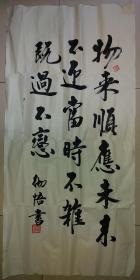 物来順應未来
不迎當時不雜
既過不戀